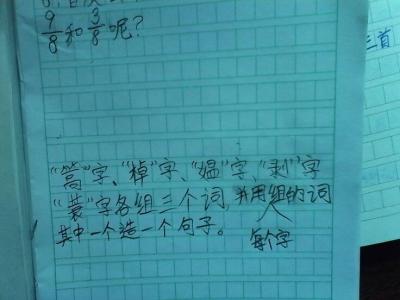 9/8和3/8呢?
三首
"蒿"字、"棹"字、"媪"字、"剥"字
"蓑"字各组三个词,并用组的词
其中一个造一个句子。
每个字